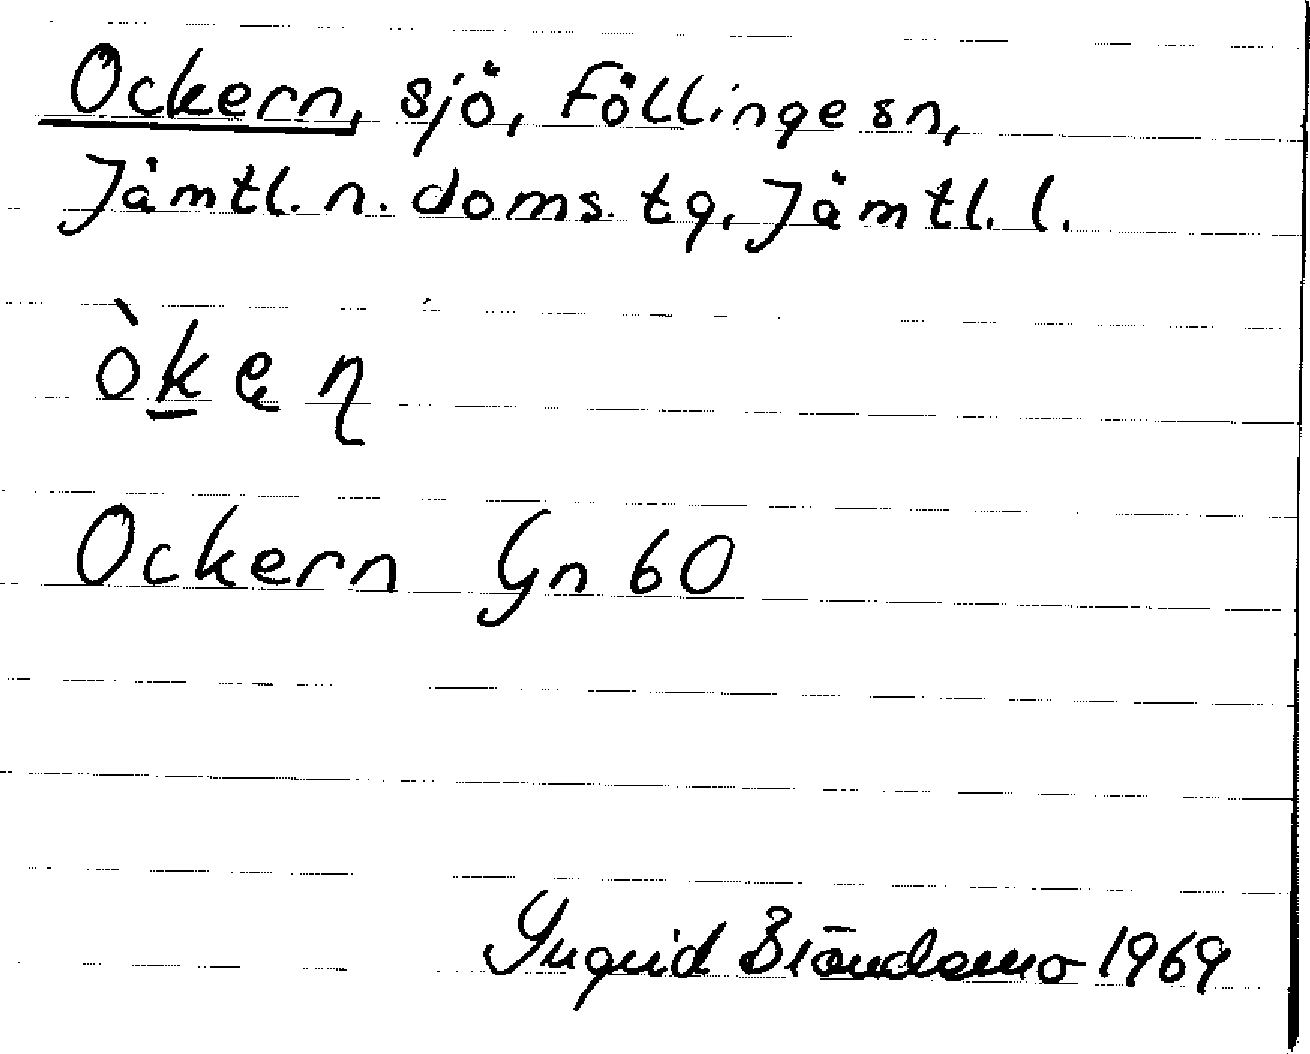 Ockern, sjö, Föllinge sn,
Jämtl. n. doms. tg, Jämtl. l.
òk̲ęη
Ockern Gn 60
Ingrid 1969